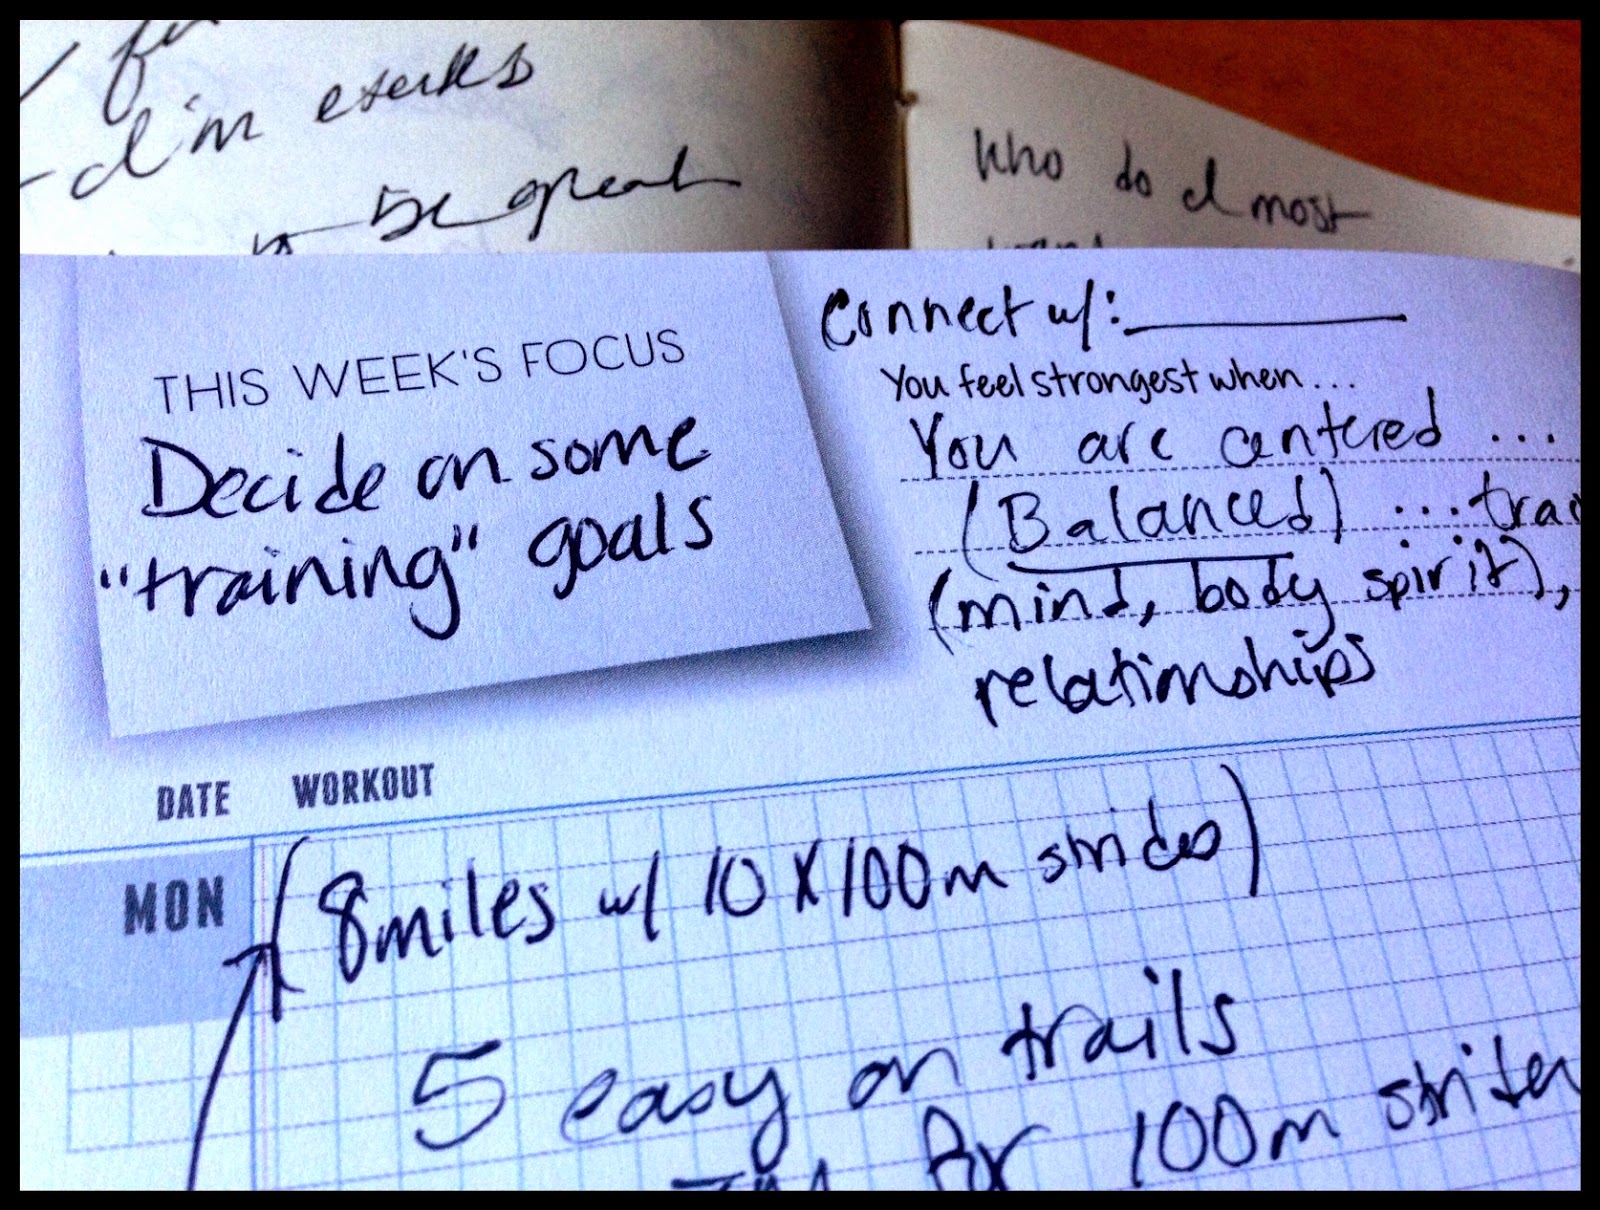 I'm
be great
Who do I most
THIS WEEK'S FOCUS
Decide on some
"training" goals
Connect w/:
You feel strongest when...
You are centered ...
(Balanced) ...
(mind, body spirit),
relationships
DATE WORKOUT
MON
(8miles w/ 10 X 100m strides)
5 easy on trails
for 100m strides